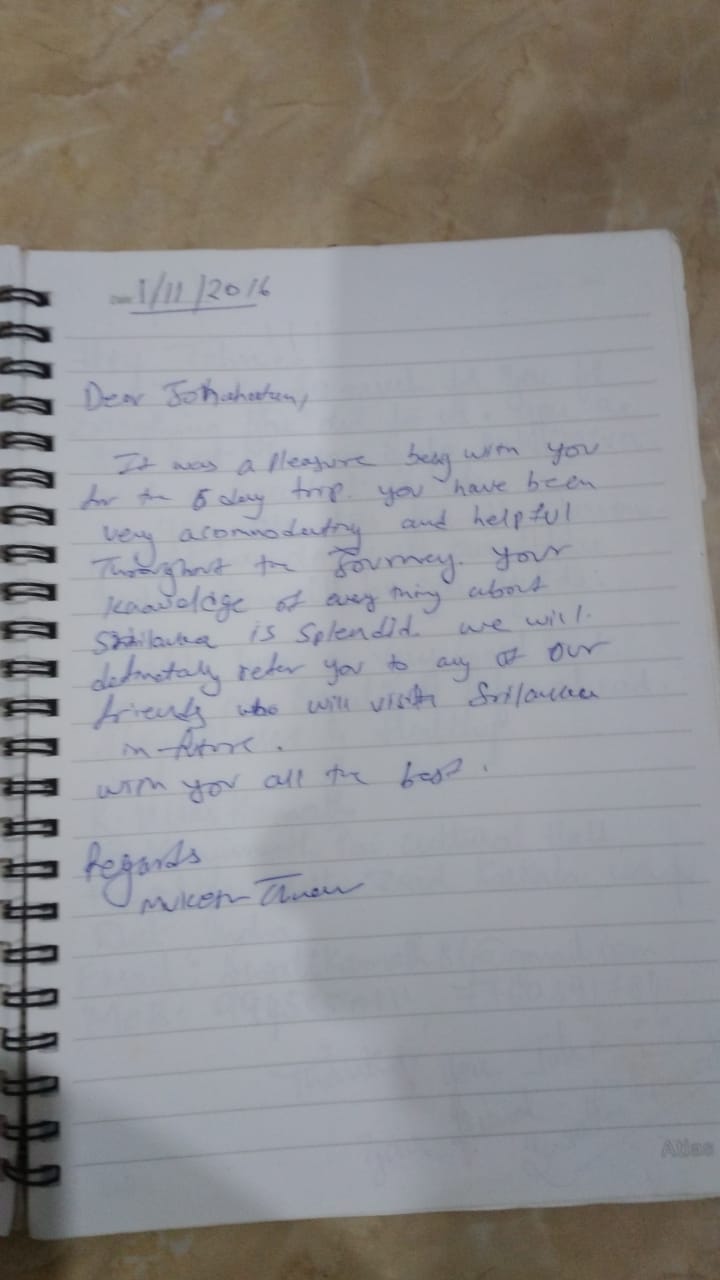 1/11/2016
Dear
It was a pleasure being with you
for the 5 day trip. you have been
very acommodating and helpful
Throughout the Journey. your
knowledge of every thing about
Srilanka is splendid. we will
definetaly refer you to any of our
friends who will visit Srilanka
in future.
wish you all the best.
Regards
Mukesh
Atlas